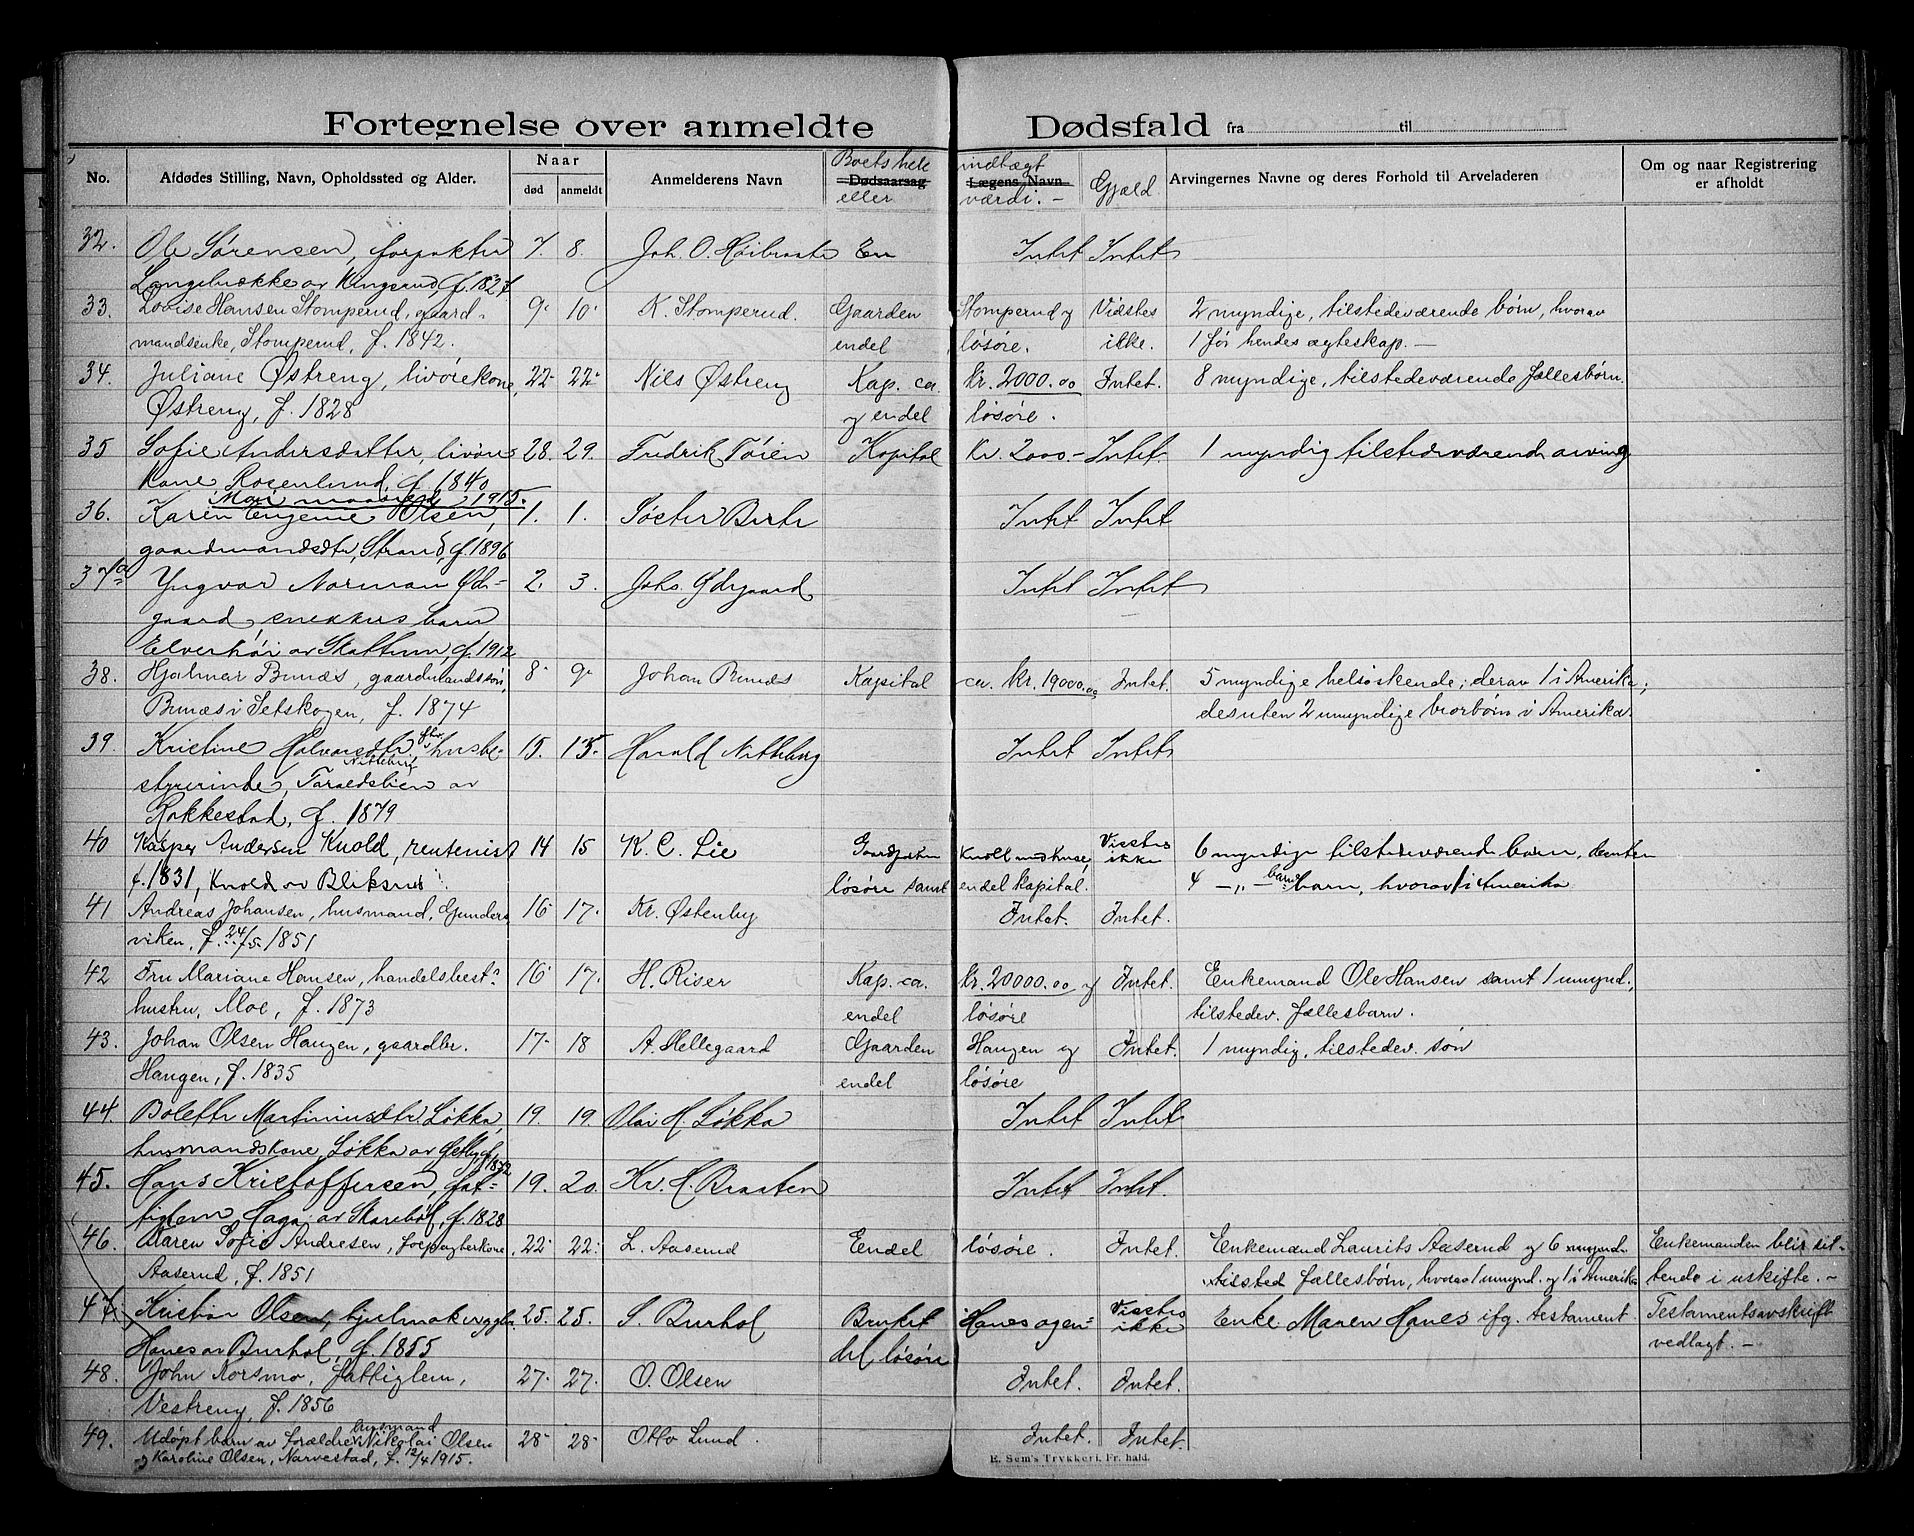 Fortegnelse over anmeldte Dødsfald fra til
No.
Afdødes Stilling, Navn, Opholdssted og Alder.
Naar
død anmeldt
Anmelderens Navn
Boets hele indtægt
Dødsaarsag Lægens Navn
eller værdi. — Gjæld.
Arvingernes Navne og deres Forhold til Arveladeren
Om og naar Registrering
er afholdt
32. Ole Sørensen, forpakter 7. 8. Joh. O. Høibraaten En Intet Intet
Langebække av Kingsrud, f. 1827
33. Lovise Hansen Stomperud, gaard- 9- 10- K. Stomperud. Gaarden Stomperud og Vidstes 2 myndige, tilstedeværende børn, hvorav
mandsenke, Stomperud, f. 1842. endel løsøre. ikke. 1 før hendes ægteskap. —
34. Juliane Østreng, livørekone, 22- 22- Nils Østreng Kap. ca. kr. 2000.00 Intet. 8 myndige, tilstedeværende fællesbørn.
Østreng, f. 1828 og endel løsøre.
35 Sofie Andersdatter, livøre 28. 29. Fredrik Tøien Kapital Kr. 2000.- Intet. 1 myndig tilstedeværende arving
kone Rosenlund, f. 1840
Mai maaned 1915.
36. Karen Eugenie Olsen, 1. 1. Søster Berte Intet Intet
gaardmandsdtr, Strand, f. 1896
37a Yngvar Norman Øde- 2. 3. Johs. Ødegaard Intet Intet
gaard, barn
Elverhøi av Skattum, f. 1912
38. Hjalmar Bunæs, gaardmandssøn, 8- 9- Johan Bunæs Kapital ca. kr. 19000.00 Intet. 5 myndige helsøskende; derav 1 i Amerika;
Bunæs i Setskogen, f. 1874 desuten 2 umyndige brorbørn i Amerika.
39. Kristine Halvorsdtr husbe- 15. 15. Harald Nitteberg Intet Intet
Nitteberg
styrerinde, Taraldslien av
Rakkestad, f. 1879
40 Kasper Andersen Knold, rentenist 14 15 K. C. Lie Gaardparten Knold med huse, Visstes 6 myndige tilstedeværende barn, desuten
f. 1831, Knold av Bliksrud løsøre samt endel kapital. ikke 4 —„— barnebarn, hvorav 1 i Amerika
41 Andreas Johansen, husmand, Gunders 16- 17. Kr. Østenby Intet. Intet.
viken, f. 24/5 1851
42 Fru Mariane Hansen, handelsbest. 16- 17. H. Riser Kap. ca. kr. 20000.00 og Intet. Enkemand Ole Hansen samt 1 umynd.,
hustru, Moe, f. 1873 endel løsøre tilstedev. fællesbarn.
43. Johan Olsen Haugen, gaardbr. 17- 18 A. Hellegaard Gaarden Haugen og Intet. 1 myndig, tilstedev. søn
Haugen, f. 1835 endel løsøre
44. Bolette Martiniusdtr Løkka, 19. 19. Olai H. Løkka Intet Intet
husmandskone, Løkka av f. 1872
45. Hans Kristoffersen, fat- 19. 20. Kr. H. Braaten Intet Intet.
tiglem Haga av Skarebøl, f. 1828
46. Karen Sofie Andresen, forpagterkone, 22- 22- L. Aaserud Endel løsøre. Intet. Enkemand Laurits Aaserud og 6 mynd. Enkemanden blir sit-
Aaserud, f. 1851 tilsted fællesbørn, hvorav 1 umynd. og 1 i Amerika tende i uskifte. —
47. Kristian Olsen, hjulmaker 25. 25. S. Burhol Bruket Hanes ogen- Visstes Enke Maren Hanes ifg. testament Testamentsavskrift
Hanes av Burhol, f. 1855 del løsøre ikke vedlagt. —
48. John Korsmo, fattiglem, 27- 27. O. Olsen Intet. Intet.
Vestreng, f. 1856
49. Udøpt barn av forældre husmand Nikolai Olsen 28- 28- Otto Lund. Intet. Intet.
og Karoline Olsen, Narvestad, f. 12/4 1915.
E. Sem's Trykkeri, Fr. hald.